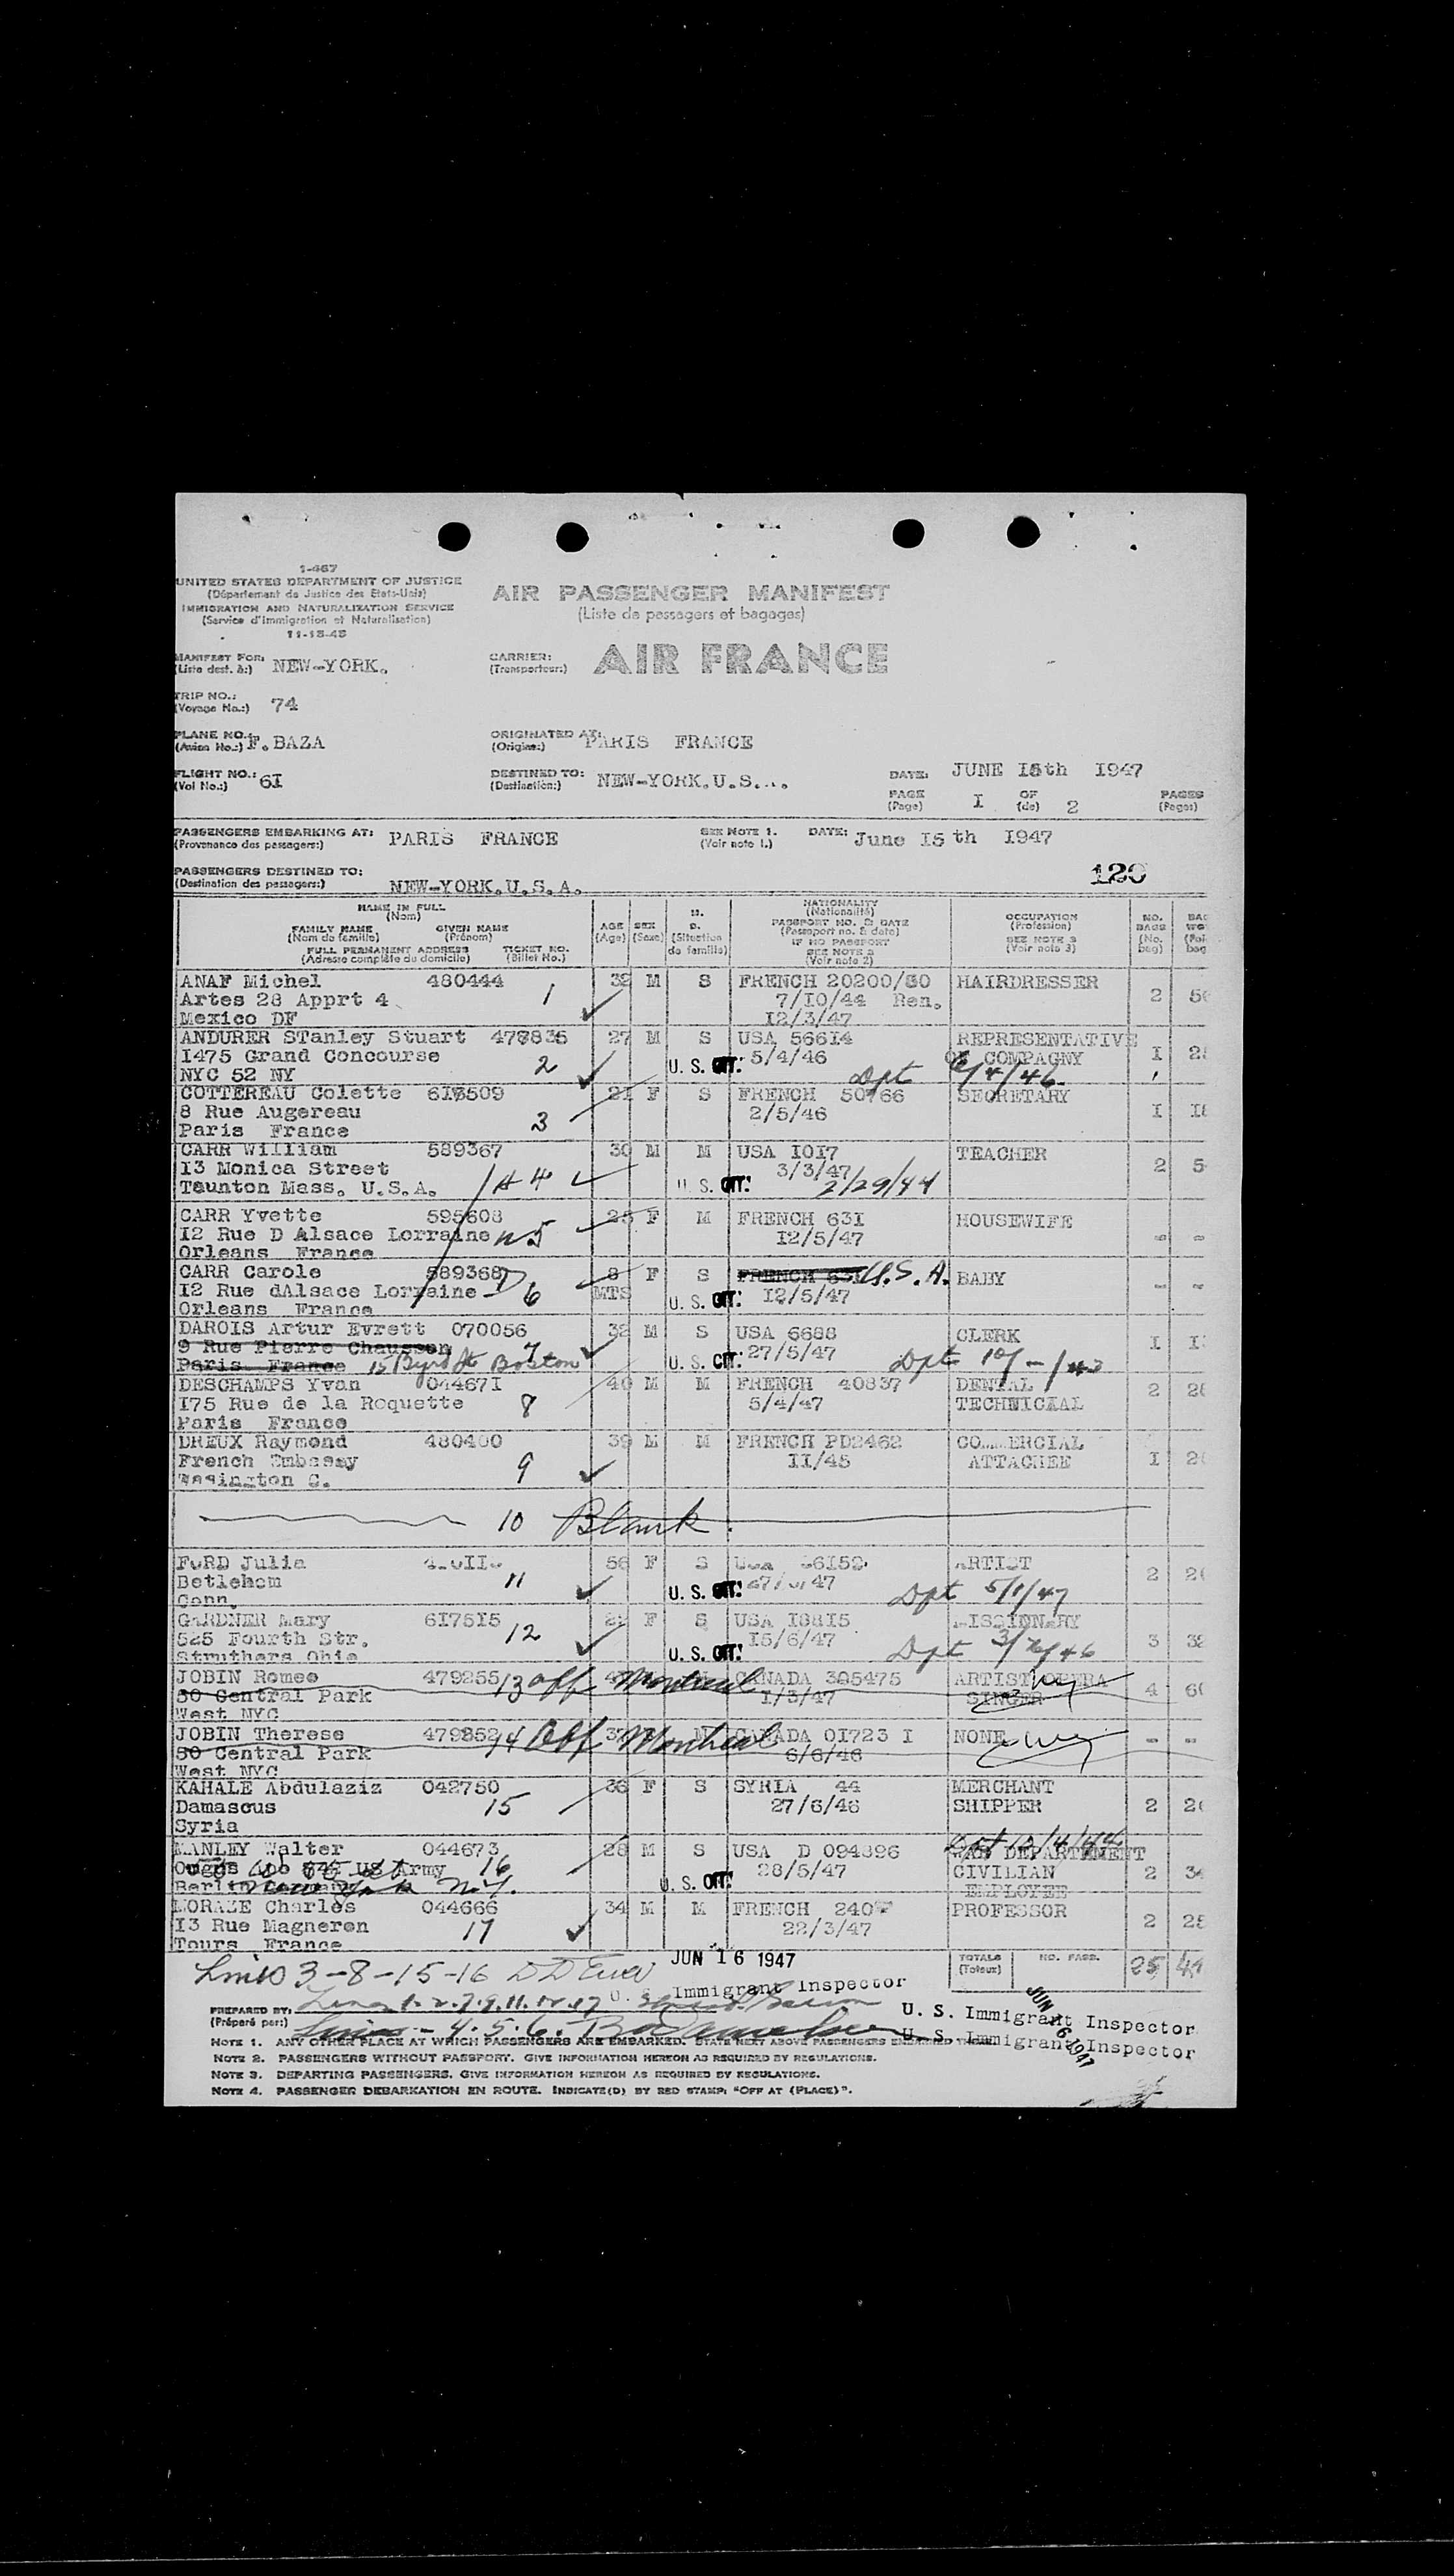 1-467
UNITED STATES DEPARTMENT OF JUSTICE
(Département de Justice des Etats-Unis)
IMMIGRATION AND NATURALIZATION SERVICE
(Service d'Immigration et Naturalisation)
11-15-45
AIR PASSENGER MANIFEST
(Liste de passagers et bagages)
MANIFEST FOR: NEW-YORK.
(Liste dest. à:)
CARRIER: AIR FRANCE
(Transporteur:)
TRIP NO.: 74
(Voyage No.:)
PLANE NO.: F.BAZA
(Avion No.:)
ORIGINATED AT: PARIS FRANCE
(Origine:)
FLIGHT NO.: 6I
(Vol No.:)
DESTINED TO: NEW-YORK.U.S.
(Destination:)
DATE: JUNE I5th I947
PAGE I OF 2 PAGES
(Page) (de) (Pages)
PASSENGERS EMBARKING AT: PARIS FRANCE
(Provenance des passagers:)
SEE NOTE 1.
(Voir note 1.)
DATE: June I5 th I947
PASSENGERS DESTINED TO: NEW-YORK.U.S.A.
(Destination des passagers:)
120
NAME IN FULL
(Nom)
FAMILY NAME GIVEN NAME
(Nom de famille) (Prénom)
FULL PERMANENT ADDRESS TICKET NO.
(Adresse complète du domicile) (Billet No.)
AGE
(Age)
SEX
(Sexe)
M.
S.
(Situation
de famille)
NATIONALITY
(Nationalité)
PASSPORT NO. & DATE
(Passeport no. & date)
IF NO PASSPORT
SEE NOTE 2
(Voir note 2)
OCCUPATION
(Profession)
SEE NOTE 3
(Voir note 3)
NO.
BAGS
(No.
bag)
ANAF Michel 480444 32 M S FRENCH 20200/50 HAIRDRESSER
Artes 28 Apprt 4 1 7/I0/44 Ren. 2
Mexico DF I2/3/47
ANDURER STanley Stuart 478835 27 M S USA 566I4 REPRESENTATIVE
I475 Grand Concourse 2 U. S. CIT. 5/4/46 COMPAGNY I
NYC 52 NY Dpt 6/4/46
COTTEREAU Colette 6I8509 2I F S FRENCH 50766 SECRETARY
8 Rue Augereau 2/5/46 I I8
Paris France 3
CARR William 589367 30 M M USA I0I7 TEACHER
I3 Monica Street 3/3/47 2
Taunton Mass. U.S.A. 4 U. S. CIT. 2/29/44
CARR Yvette 595608 25 F M FRENCH 63I HOUSEWIFE
I2 Rue D Alsace Lorraine 5 I2/5/47 - -
Orleans France
CARR Carole 589368 8 F S FRENCH 63I U.S.A. BABY
I2 Rue dAlsace Lorraine 6 MTS U. S. CIT. I2/5/47 - -
Orleans France
DAROIS Artur Evrett 070056 32 M S USA 6688 CLERK
9 Rue Pierre Chausson 7 27/5/47 I
Paris France 15 Byrd St Boston U. S. CIT. Dpt 10/-/43
DESCHAMPS Yvan 04467I 40 M M FRENCH 40837 DENTAL
I75 Rue de la Roquette 8 5/4/47 TECHNICAAL 2
Paris France
DREUX Raymond 480400 39 M M FRENCH PD2462 COMMERCIAL
French Embassy 9 II/45 ATTACHEE I
Wasington C.
10 Blank
FORD Julia 56 F S ARTIST
Betlehem 11 2
Conn. U. S. CIT. Dpt 5/1/47
GARDNER Mary 6I75I5 F S USA I88I5 MISSIONARY
525 Fourth Str. 12 I5/6/47 3
Struthers Ohio U. S. CIT. Dpt
JOBIN Romeo 479255 13 off Montreal CANADA 305475 ARTIST OPERA
50 Central Park I/3/47 SINGER 4
West NYC
JOBIN Therese 479252 14 Off Montreal CANADA 0I723 I NONE
50 Central Park 6/6/46 - -
West NYC
KAHALE Abdulaziz 042750 36 F S SYRIA 44 MERCHANT
Damascus 15 27/6/46 SHIPPER 2
Syria
MANLEY Walter 044673 28 M S USA D 094896 WAR DEPARTEMENT
US Army 16 28/5/47 CIVILIAN 2
Berlin Germany New York N.Y. U. S. CIT. EMPLOYEE
MORAZE Charles 044666 34 M M FRENCH 240 PROFESSOR
I3 Rue Magneron 17 22/3/47 2
Tours France
JUN 16 1947
TOTALS NO. PASS. 25
(Totaux)
Lines 3-8-15-16
U. S. Immigrant Inspector
Lines 1.2.7.9.11.12.17
PREPARED BY:
(Préparé par:)
Lines - 4.5.6.
U. S. Immigrant Inspector
U. S. Immigrant Inspector
JUN 16 1947
NOTE 1. ANY OTHER PLACE AT WHICH PASSENGERS ARE EMBARKED. STATE NEXT ABOVE PASSENGERS EMBARKED THERE
NOTE 2. PASSENGERS WITHOUT PASSPORT. GIVE INFORMATION HEREON AS REQUIRED BY REGULATIONS.
NOTE 3. DEPARTING PASSENGERS. GIVE INFORMATION HEREON AS REQUIRED BY REGULATIONS.
NOTE 4. PASSENGER DEBARKATION EN ROUTE. INDICATE(D) BY RED STAMP: "OFF AT (PLACE)".